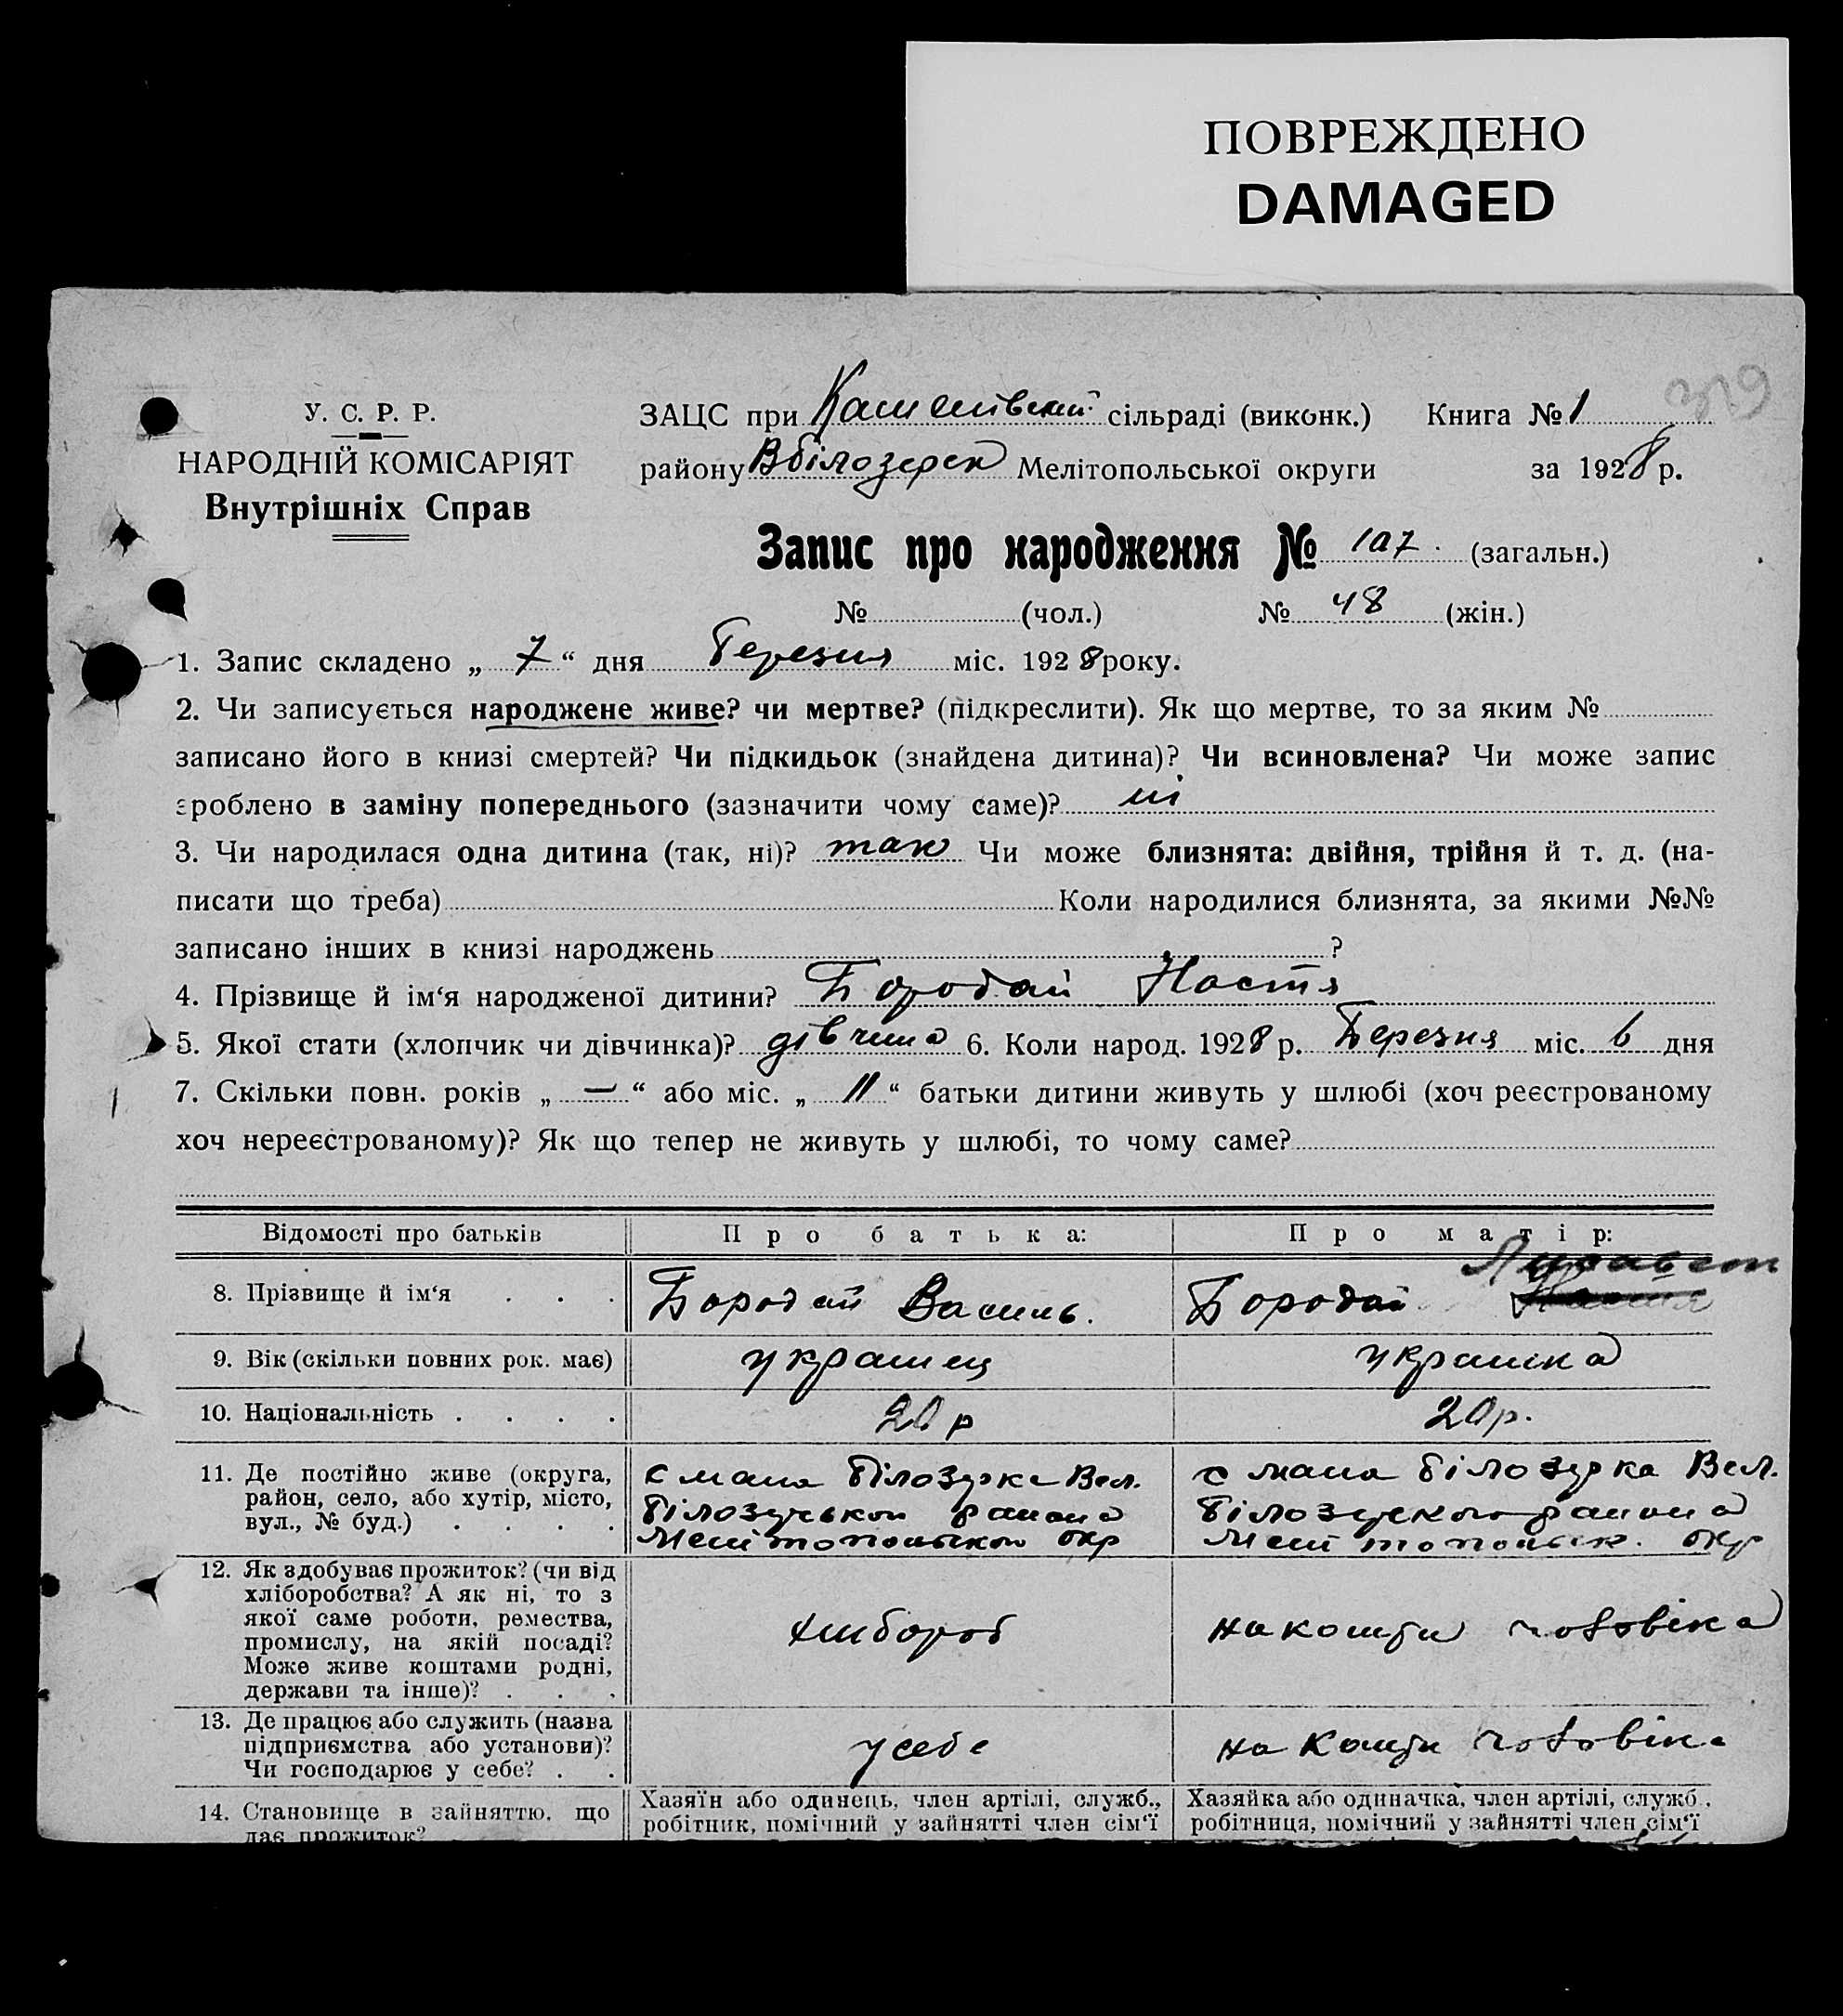 ПОВРЕЖДЕНО
DAMAGED
319
У. С. Р. Р.
НАРОДНІЙ КОМІСАРІЯТ
Внутрішніх Справ
ЗАЦС при сільраді (виконк.) Книга № 1
району Вбілозерск Мелітопольської округи за 1928 р.
Запис про народження № 107. (загальн.)
№ (чол.) № 48 (жін.)
1. Запис складено „ 7 “ дня Березня міс. 1928 року.
2. Чи записується народжене живе? чи мертве? (підкреслити). Як що мертве, то за яким №
записано його в книзі смертей? Чи підкидьок (знайдена дитина)? Чи всиновлена? Чи може запис
зроблено в заміну попереднього (зазначити чому саме)? ні
3. Чи народилася одна дитина (так, ні)? так Чи може близнята: двійня, трійня й т. д. (на-
писати що треба) Коли народилися близнята, за якими №№
записано інших в книзі народжень ?
4. Прізвище й ім‘я народженої дитини? Бородай Настя
5. Якої стати (хлопчик чи дівчинка)? дівчина 6. Коли народ. 1928 р. Березня міс. 6 дня
7. Скільки повн. років „ — “ або міс. „ 11 “ батьки дитини живуть у шлюбі (хоч реєстрованому
хоч нереєстрованому)? Як що тепер не живуть у шлюбі, то чому саме?
Відомості про батьків
Про батька:
Про матір:
8. Прізвище й ім‘я . . .
Бородай Василь.
Бородай
9. Вік (скільки повних рок. має)
українец
українка
10. Національність . . . .
20 р
20 р.
11. Де постійно живе (округа,
район, село, або хутір, місто,
вул., № буд.) . . . .
с мала Білозурка Вел.
Білозурської района
Мелітопольской окр
с мала Білозурка Вел.
Білозурской района
Мелітопольск. окр
12. Як здобуває прожиток? (чи від
хліборобства? А як ні, то з
якої саме роботи, ремества,
промислу, на якій посаді?
Може живе коштами родні,
держави та інше)? . . .
хлібороб
на кошти чоловіка
13. Де працює або служить (назва
підприємства або установи)?
Чи господарює у себе? . .
у себе
на кошти чоловіка
14. Становище в зайняттю, що
дає прожиток?
Хазяїн або одинець, член артілі, служб.,
робітник, помічний у зайнятті член сім‘ї
Хазяйка або одиначка, член артілі, служб.,
робітниця, помічний у зайнятті член сім‘ї